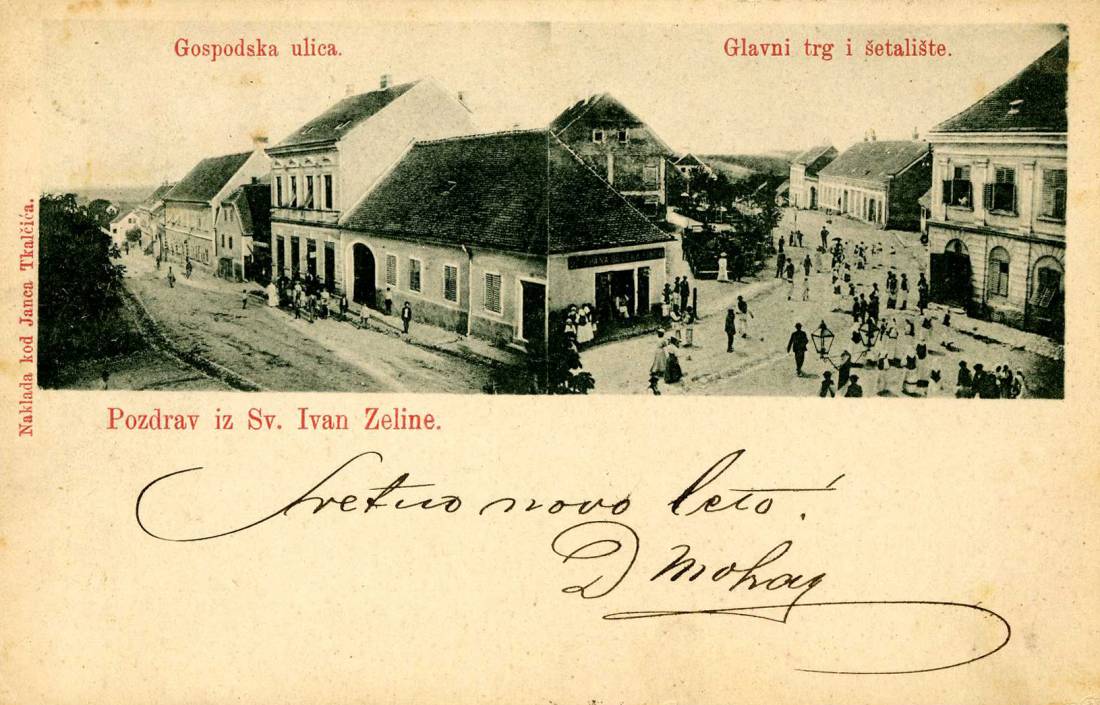 Gospodska ulica.
Glavni trg i šetalište.
Naklada kod Janca Tkalčića.
Pozdrav iz Sv. Ivan Zeline.
Sretno novo leto!
D Mohay